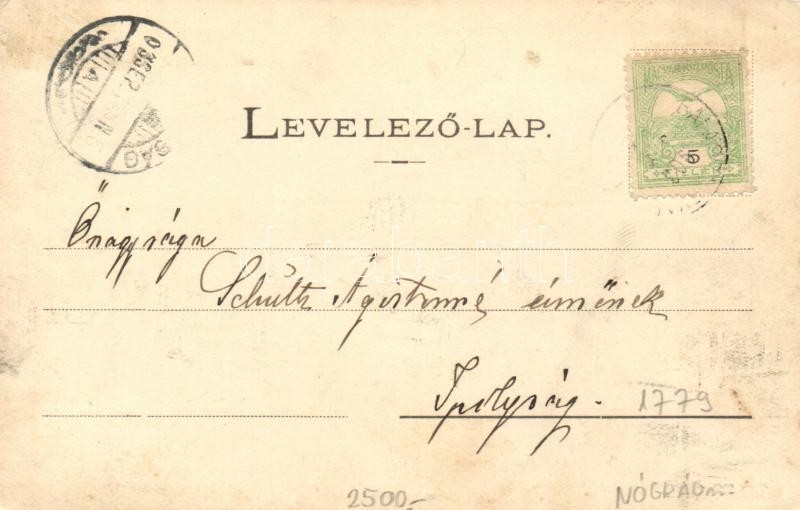 LEVELEZŐ-LAP.
MAGYAR KIR. POSTA
5
FILLÉR
Őnagysága
Schultz Ágostonné címének
Ipolyság.
1779
2500,-
NÓGRÁD
darabanth